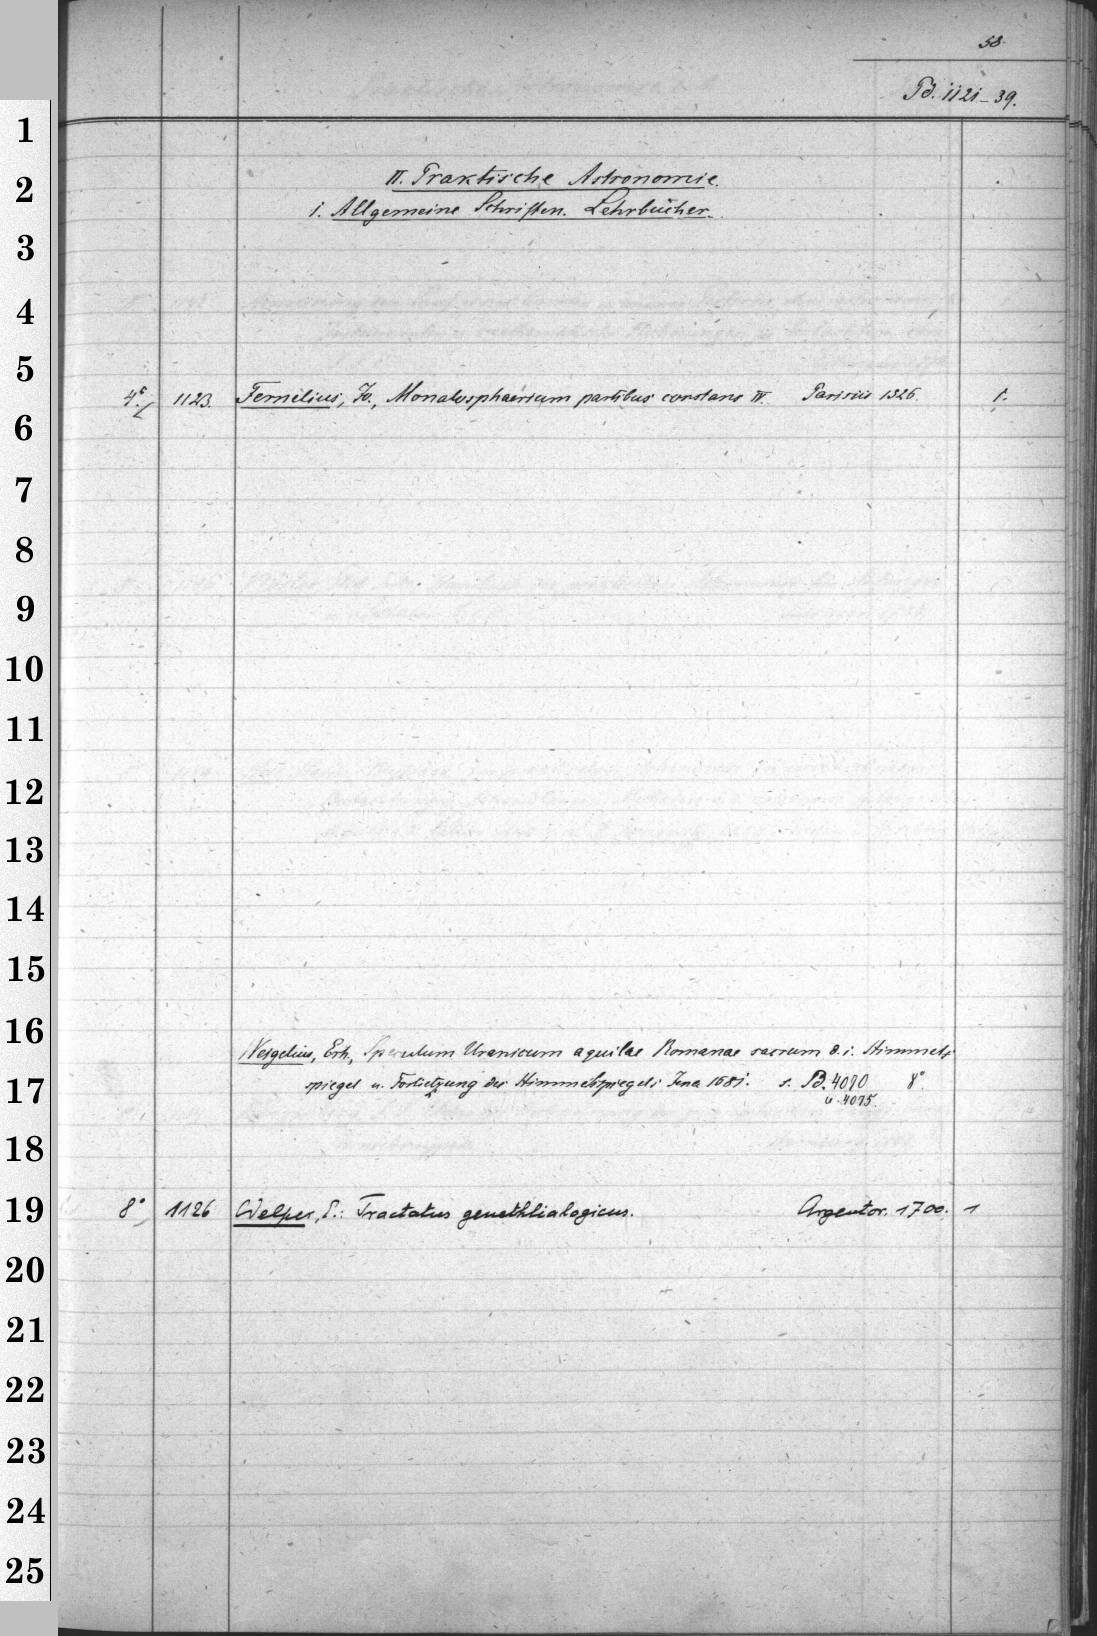 58.
Pd. 1121-39.
II. Praktische Astronomie.
1. Allgemeine Schriften. Lehrbücher.
4° 1123. Fernelius, Jo., Monalosphaerium partibus constans IV. Parisiis 1526. 1.
Weigelius, Erh., Speculum Uranicum aquilae Romanae sacrum d. i. Himmels-
spiegel u. Fortsetzung des Himmelsspiegels Jena 1681. s. B. 4090 8°
u. 4095.
8° 1126 Welper, E.: Tractatus genethlialogicus. Argentor. 1700. 1
1
2
3
4
5
6
7
8
9
10
11
12
13
14
15
16
17
18
19
20
21
22
23
24
25